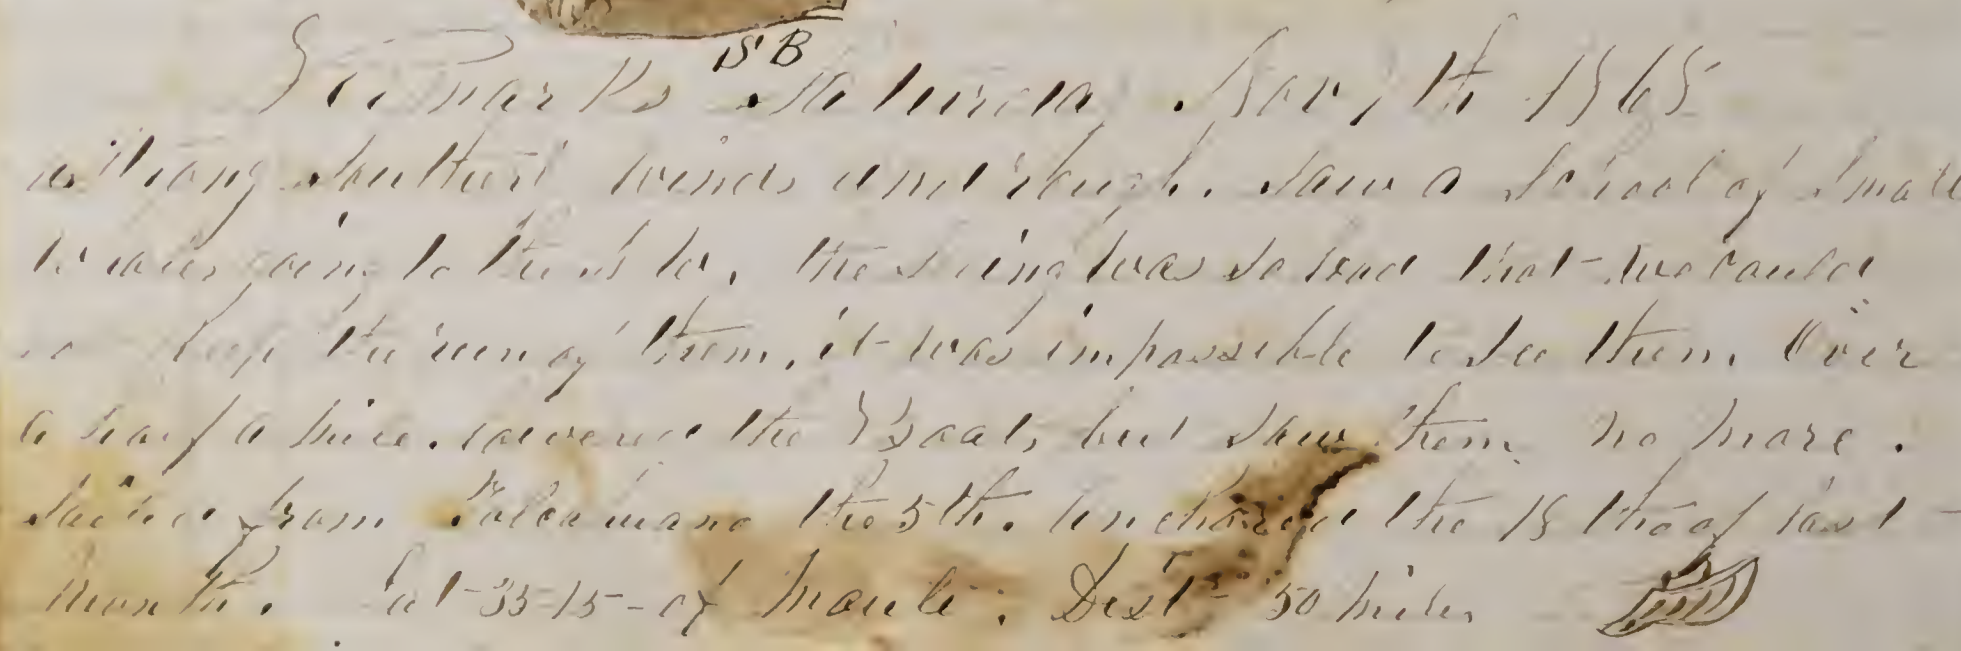 SB
Remarks Saturday Nov 7th 1868
Strong winds and rough. Saw a School of Small
whales going to the the seing was so bad that we could
keep the run of them, it was impossible to See them Over
a half a mile. lowered the Boats but Saw them no more.
Sailed from Talcahuano the 5th. Anchored the 18 th of last
month. Lat - 35-15 - of Maule. Dist - 50 miles